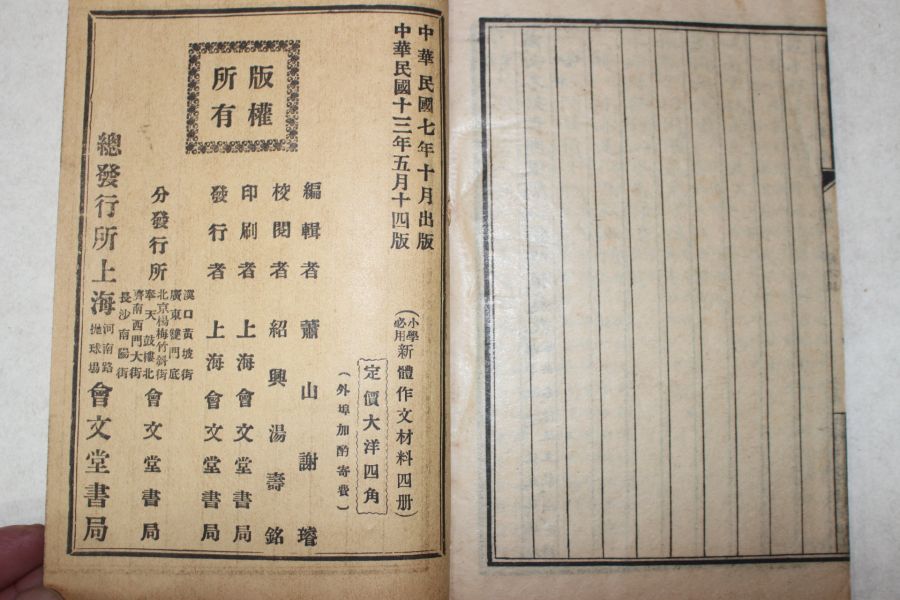 中華民國七年十月出版
中華民國十三年五月十四版
(小學必用新體作文材料四册)
定價大洋四角
(外埠加酌寄費)
編輯者 蕭山謝璿
校閱者 紹興湯壽銘
印刷者 上海會文堂書局
發行者 上海會文堂書局
版權
所有
分發行所
漢口黃坡街
廣東雙門底
北京楊梅竹斜街
奉天鼓樓北
濟南西門大街
長沙南陽街
會文堂書局
總發行所上海
河南路
拋球場
會文堂書局